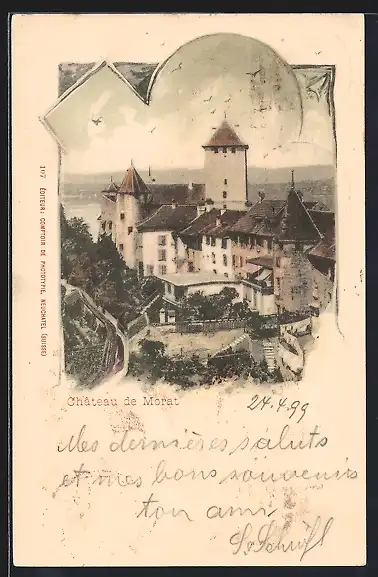 107 ÉDITEUR: COMPTOIR DE PHOTOTYPIE, NEUCHATEL (SUISSE)
Château de Morat
24.4.99
Mes dernières saluts
et mes bons souvenirs
ton ami